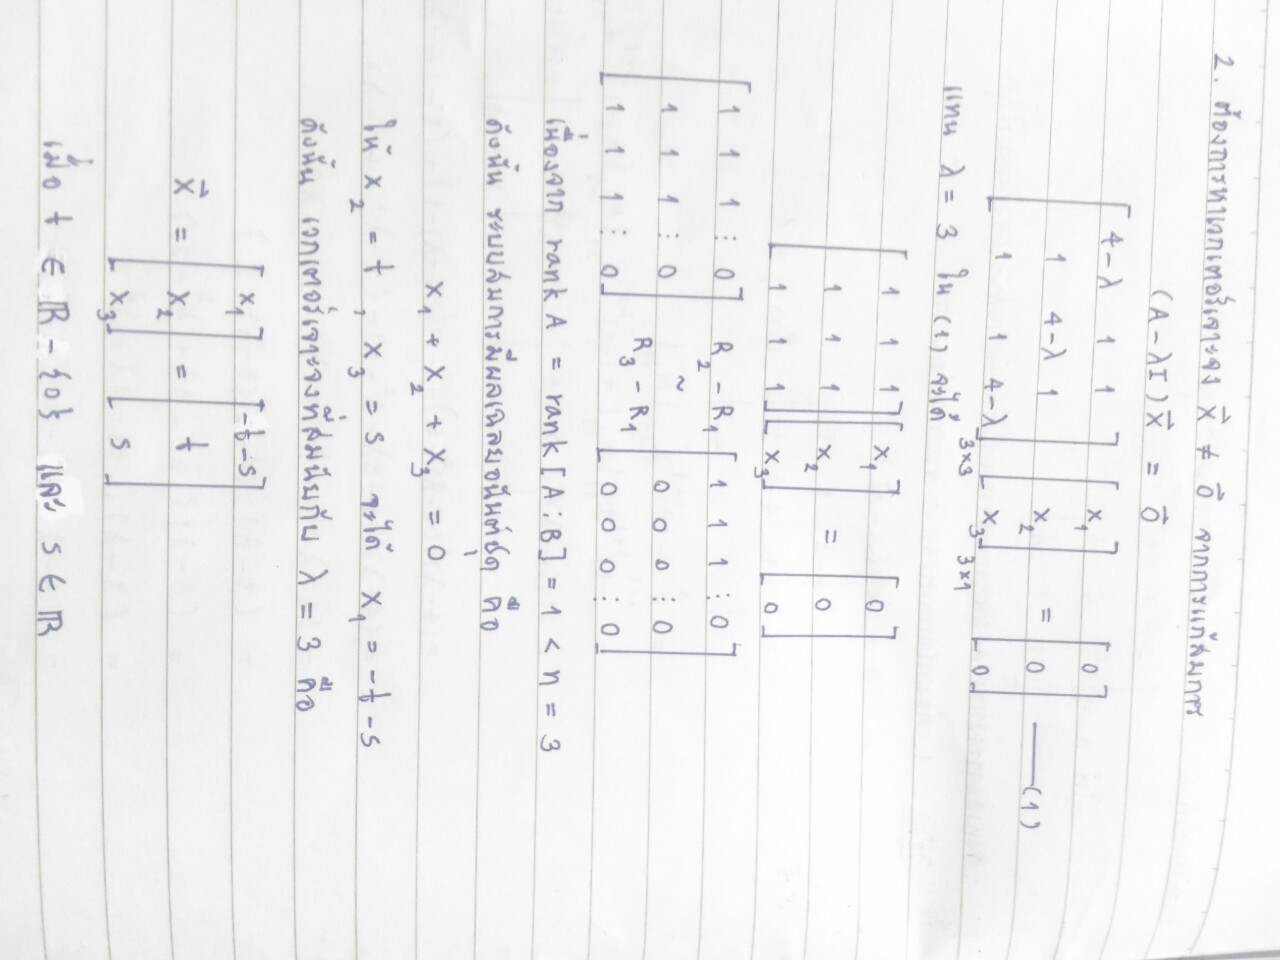 2. ต้องการหาเวกเตอร์เจาะจง x⃗ ≠ 0⃗ จากการแก้สมการ
(A-λI)x⃗ = 0⃗
[4-λ 1 1; 1 4-λ 1; 1 1 4-λ]3×3 [x1; x2; x3]3×1 = [0; 0; 0] ——(1)
แทน λ = 3 ใน (1) จะได้
[1 1 1; 1 1 1; 1 1 1] [x1; x2; x3] = [0; 0; 0]
[1 1 1 ⋮ 0; 1 1 1 ⋮ 0; 1 1 1 ⋮ 0] R2 - R1 ~ R3 - R1 [1 1 1 ⋮ 0; 0 0 0 ⋮ 0; 0 0 0 ⋮ 0]
เนื่องจาก rank A = rank [A ⋮ B] = 1 < n = 3
ดังนั้น ระบบสมการมีผลเฉลยอนันต์ชุด คือ
x1 + x2 + x3 = 0
ให้ x2 = t , x3 = s จะได้ x1 = -t-s
ดังนั้น เวกเตอร์เจาะจงที่สมนัยกับ λ = 3 คือ
x⃗ = [x1; x2; x3] = [-t-s; t; s]
เมื่อ t ∈ ℝ - {0} และ s ∈ ℝ